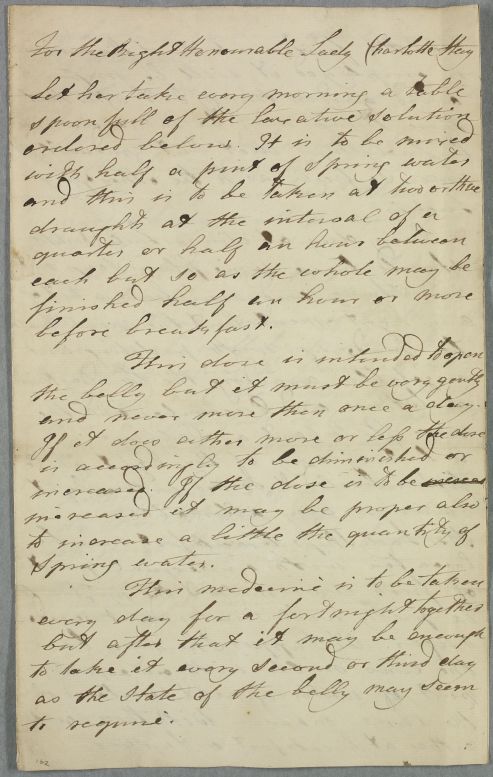 For the Right Honourable Lady Charlotte Hay
Let her take every morning a table
spoon full of the laxative solution
ordered below. It is to be mixed
with half a pint of Spring water
and this is to be taken at two or three
draughts at the interval of a
quarter or half an hour between
each but so as the whole may be
finished half an hour or more
before breakfast.
This dose is intended to open
the belly but it must be very gently
and never more than once a day.
If it does either more or less the dose
is accordingly to be diminished or
increased. If the dose is to be
increased it may be proper also
to increase a little the quantity of
Spring water.
This medecine is to be taken
every day for a fortnight together
but after that it may be enough
to take it every second or third day
as the State of the belly may seem
to require.
162